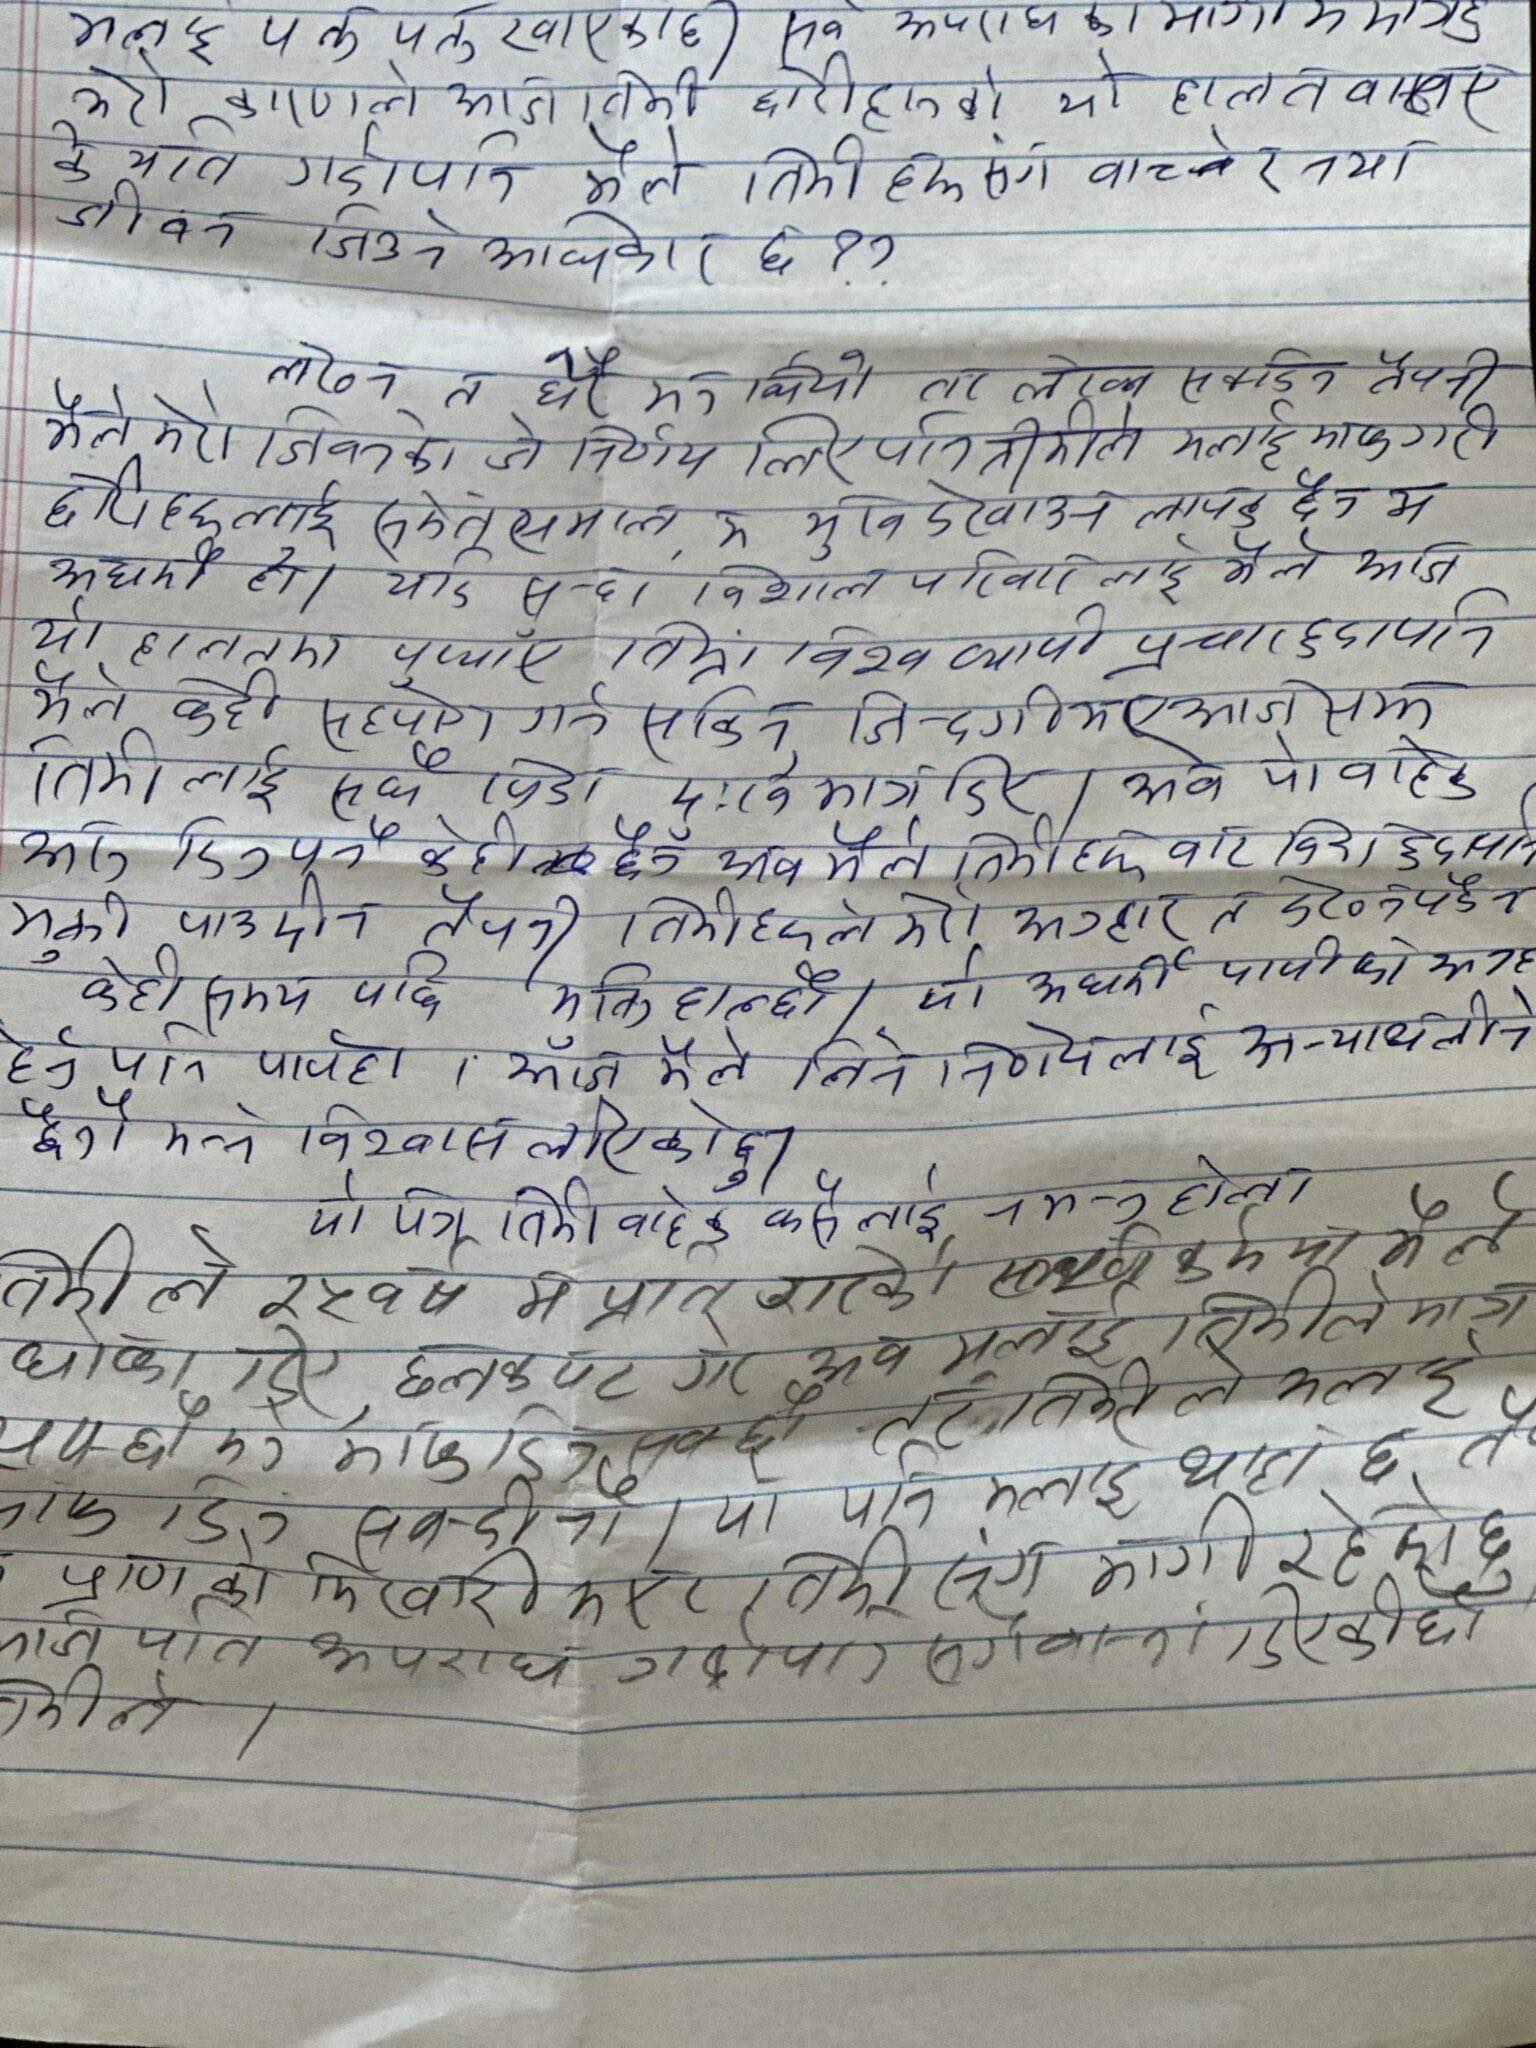 मलाई पर्ल पर्ल रुवाएकोछ। सबै अपराध का भागी म मात्रहु
मेरो कारणले आज तिमी छोरीहरुको यो हालत
के यति गर्दापनि मैले तिमी हरुसंग वाच्ने र नयाँ
जीवन जिउने अधिकार छ ??
लेख्न त धेरै मन थियो तर लेख्न सकिन तैपनी
मैले मेरो जिवनको जो निर्णय लिए पनि तीमीले मलाई माफ गरी
छोरीहरुलाई समेत् सम्हाल, म मुख देखाउन लायक छैन म
अधर्मी हो। यदि सच्चा विशाल परिवार लाई मैले आज
यो हालतमा पुर्‍याँए तिम्रो विश्व व्यापी प्रचार हुदापनि
मैले केही सहयोग गर्न सकिन, जिन्दगीभर आजसम्म
तिमी लाई सधै पिडा दुःख मात्र दिए। अब यो वाहेक
अरु दिनपर्ने केही छैन अब मैले तिमीहरु वाट विदा हुदापनि
मुक्ती पाउदीन तैपनी तिमीहरुले मेरो अनुहार त देख्नपर्दैन
केही समय पछि भुलिहाल्छौ। यो अधर्मी पापीको
हेर्न पनि पापहो। आज मैले लिने निर्णयलाई अन्याथलीने
छैनौ भन्ने विश्वास लिएकोछु।
यो पत्र तिमी वाहेक कसैलाई नभन्नु होला
तिमी ले २५ वर्ष म प्रति गरेको कर्म मा मैले
धोका दिए, छलकपट गरे अब मलाई तिमीले मात्र
माफ दिन सक्छौ तर तिमीले मलाई
माफ दिन सक्दीनौ। यो पनि मलाई थाहा छ,
प्राणको भिखारी भएर तिमी संग मागी रहेकोछु
पति अपराध गर्दापनि डिएकीछौ
तिमीले।